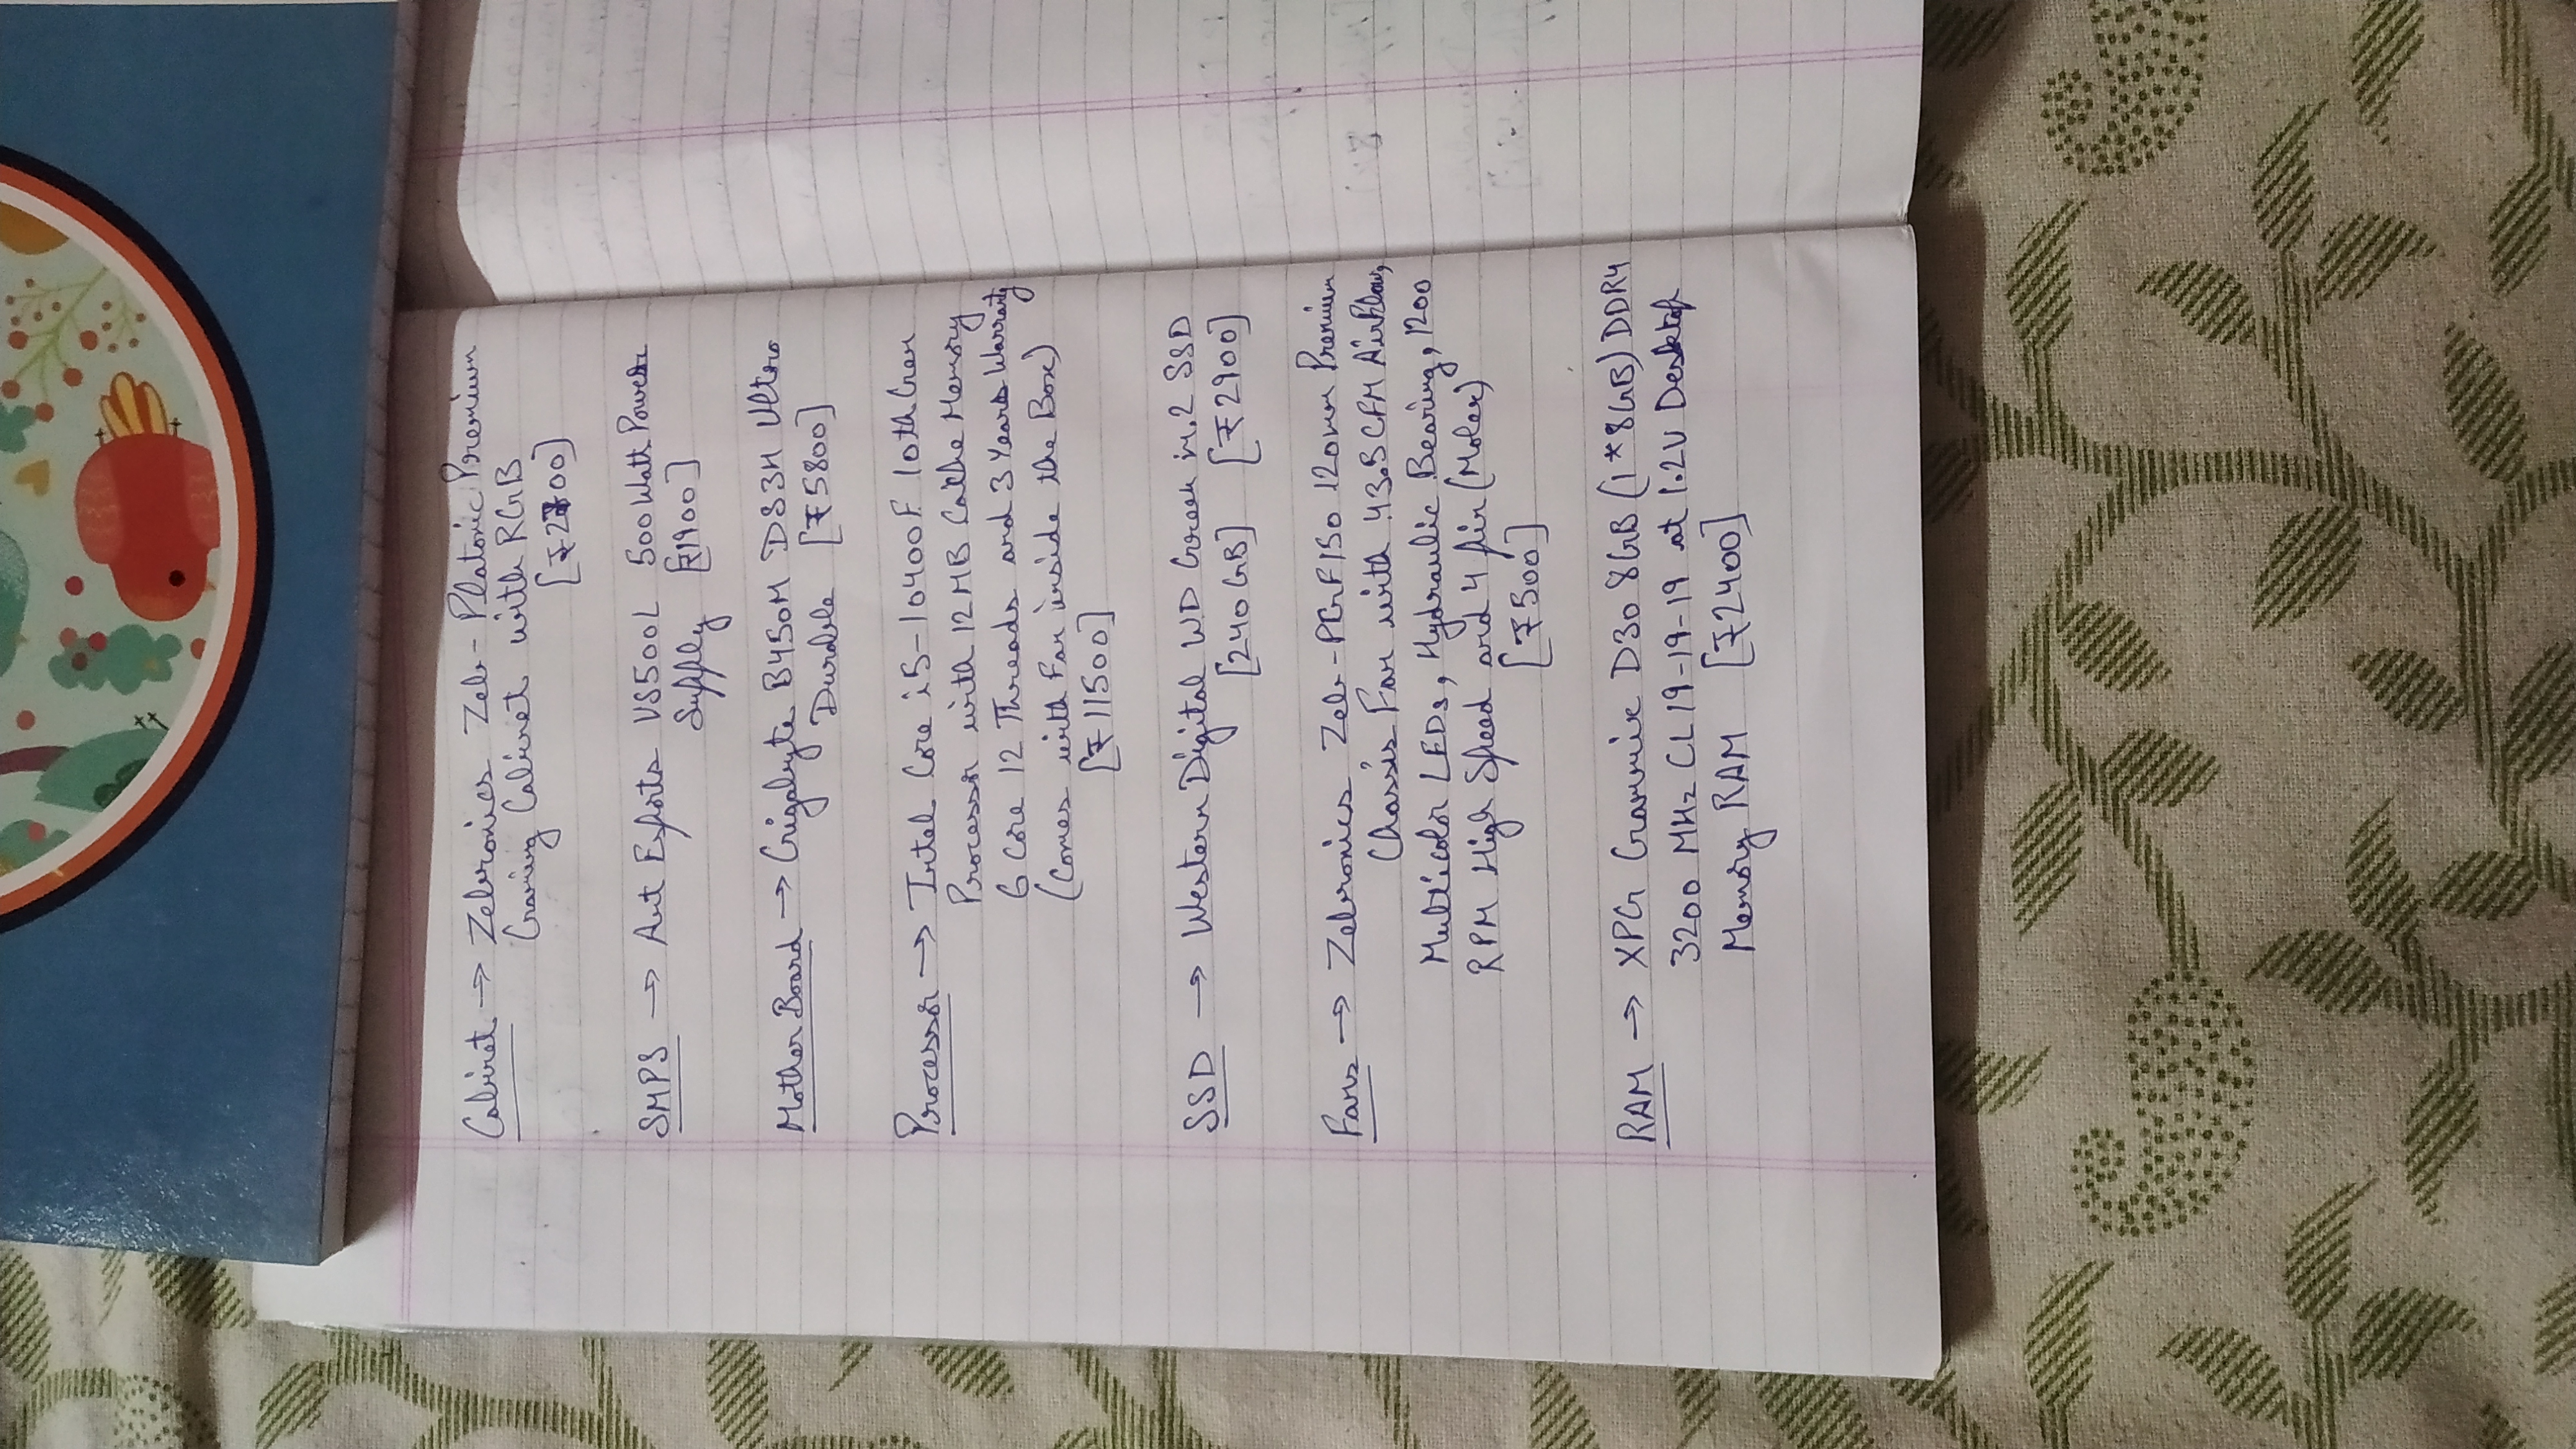 Cabinet → Zebronics Zeb-Platonic Premium
Gaming Cabinet with RGB
[₹2700]
SMPS → Ant Esports VS500L 500 Watt Power
Supply [₹1900]
Mother Board → Gigabyte B450M DS3H Ultra
Durable [₹5800]
Processor → Intel Core i5-10400F 10th Gen
Processor with 12 MB Cache Memory
6 Core 12 Threads and 3 Years Warranty
(Comes with Fan inside the Box)
[₹11500]
SSD → Western Digital WD Green m.2 SSD
[240 GB] [₹2900]
Fans → Zebronics Zeb-PGF150 120mm Premium
Chassis Fan with 43.5 CFM AirFlow,
Multicolor LEDs, Hydraulic Bearing, 1200
RPM High Speed and 4 Pin (Molex)
[₹500]
RAM → XPG Gammix D30 8GB (1*8GB) DDR4
3200 MHz CL 19-19-19 at 1.2V Desktop
Memory RAM [₹2400]